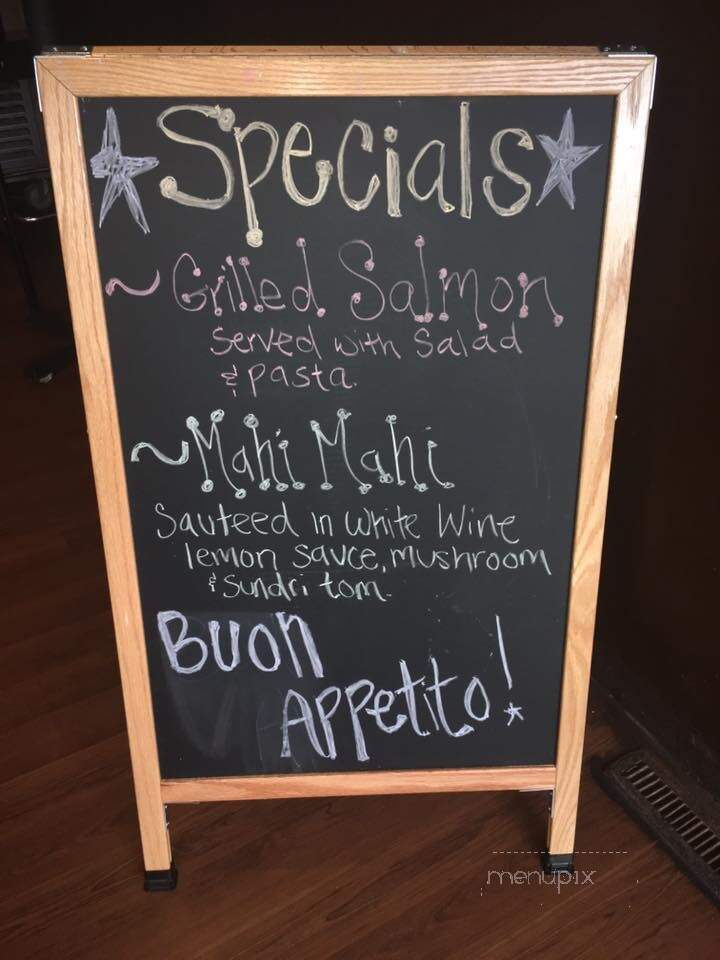 Specials
~Grilled Salmon
Served with Salad
& pasta.
~Mahi Mahi
Sauteed in white Wine
lemon sauce, mushroom
& Sundri tom.
Buon
Appetito!
menupix